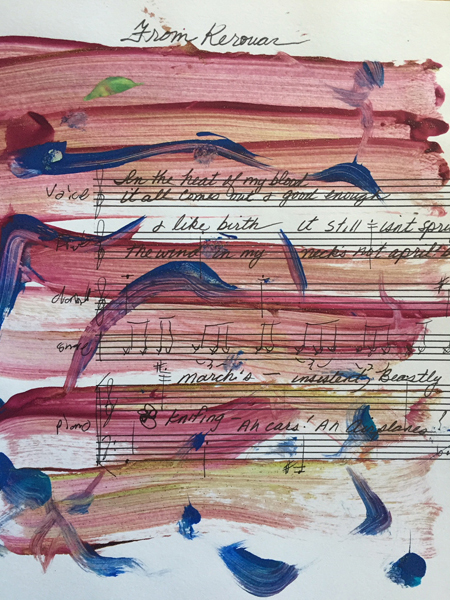 From Kerouac
In the heat of my blood
Voice
it all comes out & good enough
& like birth it still isn't spri
The wind in my neck's not april
March's — insistent, Beastly
Knifing Ah cars! Ah Air planes!
piano